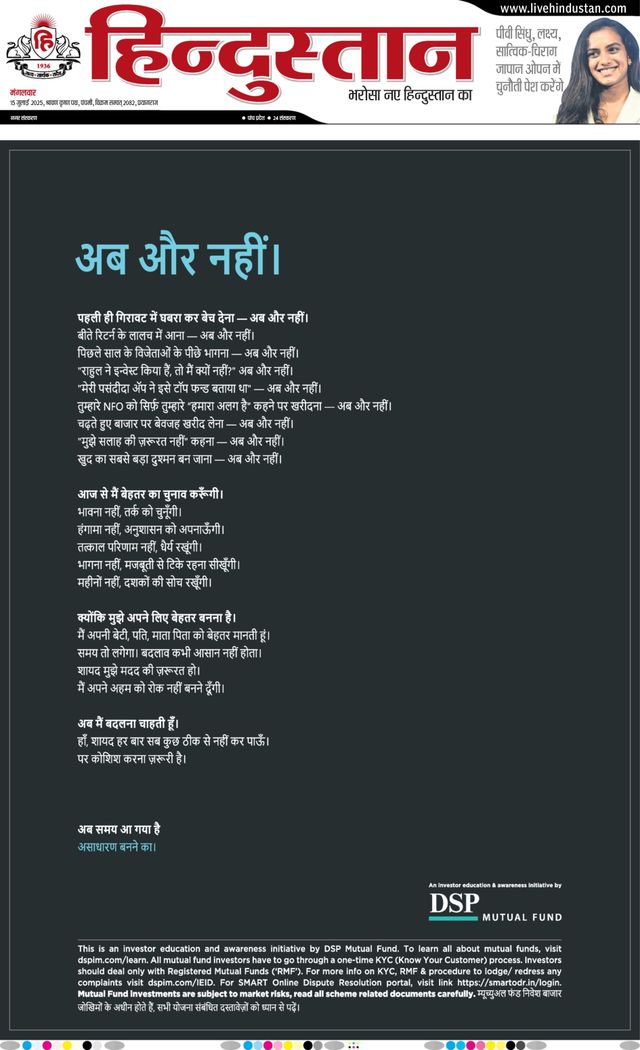 www.livehindustan.com
हि
1936
हिन्दुस्तान
भरोसा नए हिन्दुस्तान का
पीवी सिंधु, लक्ष्य,
सात्विक-चिराग
जापान ओपन में
चुनौती पेश करेंगे
मंगलवार
15 जुलाई 2025, श्रावण कृष्ण पक्ष, पंचमी, विक्रम सम्वत् 2082, प्रयागराज
नगर संस्करण
● पांच प्रदेश ● 24 संस्करण
अब और नहीं।
पहली ही गिरावट में घबरा कर बेच देना — अब और नहीं।
बीते रिटर्न के लालच में आना — अब और नहीं।
पिछले साल के विजेताओं के पीछे भागना — अब और नहीं।
"राहुल ने इन्वेस्ट किया हैं, तो मैं क्यों नहीं?" अब और नहीं।
"मेरी पसंदीदा ॲप ने इसे टॉप फन्ड बताया था" — अब और नहीं।
तुम्हारे NFO को सिर्फ़ तुम्हारे "हमारा अलग है" कहने पर खरीदना — अब और नहीं।
चढ़ते हुए बाजार पर बेवजह खरीद लेना — अब और नहीं।
"मुझे सलाह की ज़रूरत नहीं" कहना — अब और नहीं।
खुद का सबसे बड़ा दुश्मन बन जाना — अब और नहीं।
आज से मैं बेहतर का चुनाव करूँगी।
भावना नहीं, तर्क को चुनूँगी।
हंगामा नहीं, अनुशासन को अपनाऊँगी।
तत्काल परिणाम नहीं, धैर्य रखूंगी।
भागना नहीं, मजबूती से टिके रहना सीखूँगी।
महीनों नहीं, दशकों की सोच रखूँगी।
क्योंकि मुझे अपने लिए बेहतर बनना है।
मैं अपनी बेटी, पति, माता पिता को बेहतर मानती हूं।
समय तो लगेगा। बदलाव कभी आसान नहीं होता।
शायद मुझे मदद की ज़रूरत हो।
मैं अपने अहम को रोक नहीं बनने दूँगी।
अब मैं बदलना चाहती हूँ।
हाँ, शायद हर बार सब कुछ ठीक से नहीं कर पाऊँ।
पर कोशिश करना ज़रूरी है।
अब समय आ गया है
असाधारण बनने का।
An investor education & awareness initiative by
DSP
MUTUAL FUND
This is an investor education and awareness initiative by DSP Mutual Fund. To learn all about mutual funds, visit
dspim.com/learn. All mutual fund investors have to go through a one-time KYC (Know Your Customer) process. Investors
should deal only with Registered Mutual Funds ('RMF'). For more info on KYC, RMF & procedure to lodge/ redress any
complaints visit dspim.com/IEID. For SMART Online Dispute Resolution portal, visit link https://smartodr.in/login.
Mutual Fund investments are subject to market risks, read all scheme related documents carefully. म्यूच्युअल फंड निवेश बाजार
जोखिमों के अधीन होते हैं, सभी योजना संबंधित दस्तावेज़ों को ध्यान से पढ़ें।